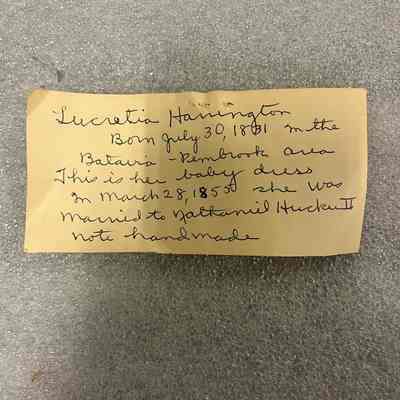 Lucretia Harrington
Born July 30, 1831 in the
Batavia - Pembrook area
This is her baby dress
In March 28, 1855 she was
Married to Nathaniel Hucker II
note handmade